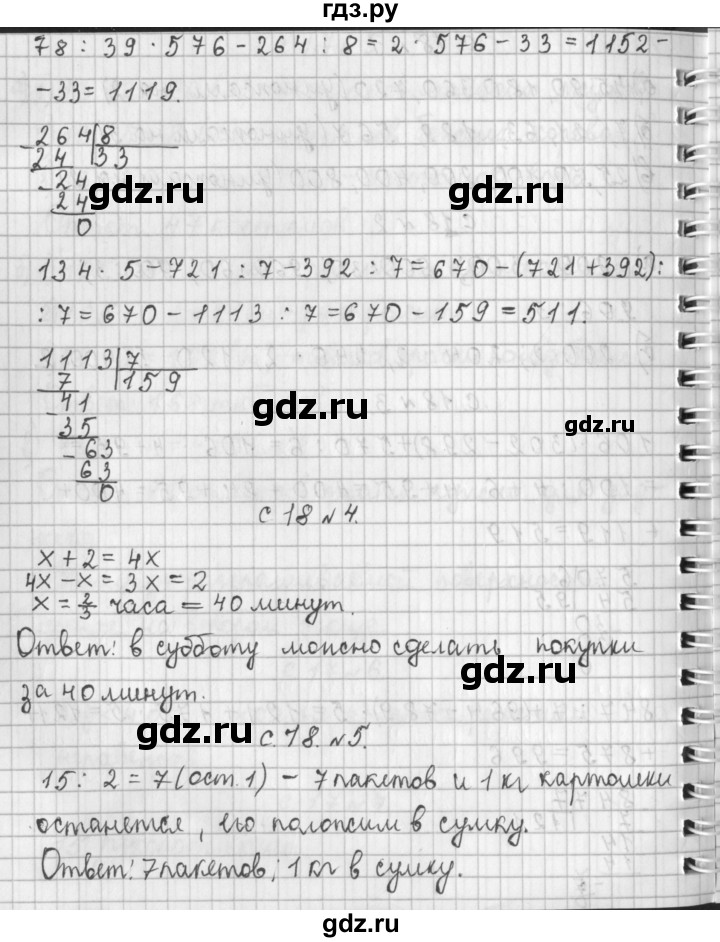 гдз.ру
78 : 39 · 576 - 264 : 8 = 2 · 576 - 33 = 1152 -
- 33 = 1119.
- 264 8
24 33
- 24
24
0
gdz.ru
gdz.ru
134 · 5 - 721 : 7 - 392 : 7 = 670 - (721 + 392) :
: 7 = 670 - 1113 : 7 = 670 - 159 = 511.
1113 7
7 159
- 41
35
- 63
63
0
gdz.ru
gdz.ru
с 18 № 4.
x + 2 = 4x
4x - x = 3x = 2
x = 2/3 часа = 40 минут.
Ответ: в субботу можно сделать покупки
за 40 минут.
gdz.ru
gdz.ru
с. 18. № 5.
15 : 2 = 7 (ост. 1) - 7 пакетов и 1 кг картошки
останется, его положим в сумку.
Ответ: 7 пакетов; 1 кг в сумку.
gdz.ru
gdz.ru
gdz.ru